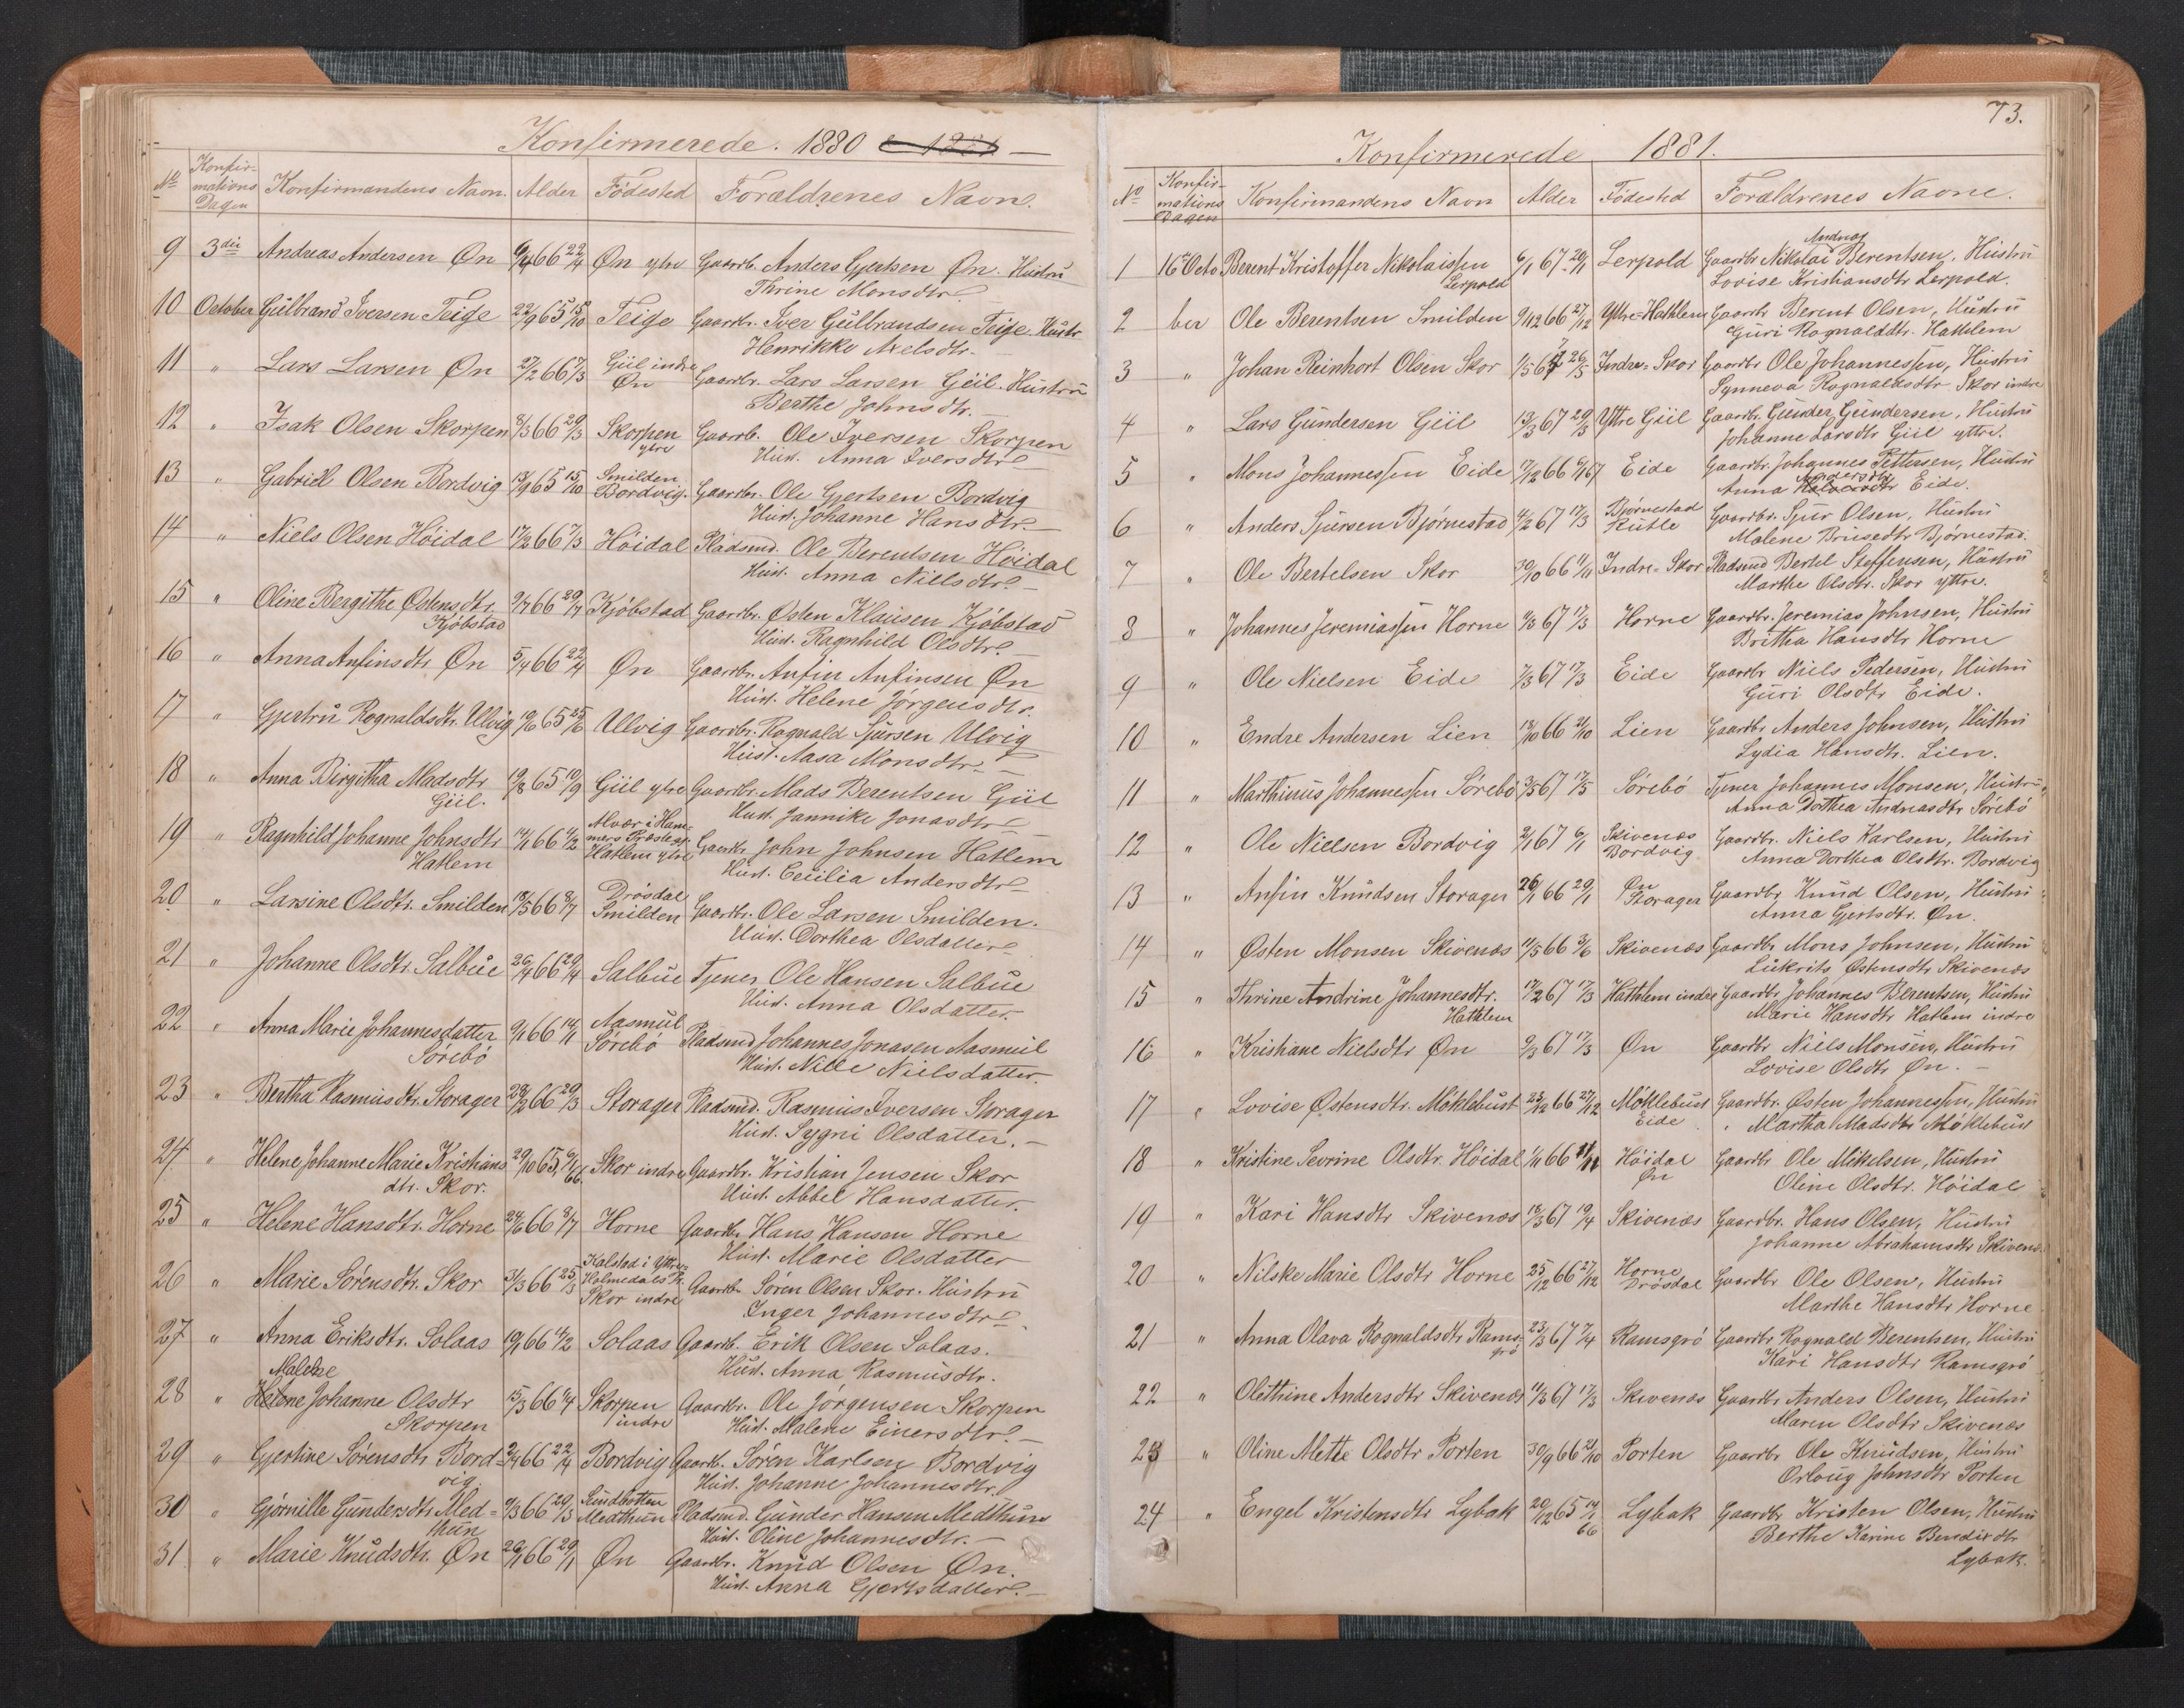 Konfirmerede. 1880
No Konfir-mations Dagen Konfirmandens Navn. Alder Födested Forældrenes Navn.
9 3die Andreas Andersen Øn 9/4 66 22/4 Øn ytre Gaardb. Anders Gjertsen Øn. Hustru
Thrine Monsdtr.
10 October Gulbrand Iversen Teige 22/9 65 15/10 Teige Gaardbr. Iver Gulbrandsen Teige. Hustr.
Henrikke Axelsdtr.
11 " Lars Larsen Øn 27/2 66 7/3 Giil indre
Øn Gaardbr. Lars Larsen Giil. Hustru
Berthe Johnsdtr.
12 " Isak Olsen Skorpen 8/3 66 29/3 Skorpen
ytre Gaardb. Ole Iversen Skorpen
Hust. Anna Iversdtr.
13 " Gabriel Olsen Bordvig 13/9 65 15/10 Smilden
Bordvig. Gaardbr. Ole Gjertsen Bordvig
Hust. Johanne Hansdtr.
14 " Niels Olsen Höidal 17/2 66 7/3 Höidal Pladsmd. Ole Berentsen Höidal
Hust. Anna Nielsdtr.
15 " Oline Bergithe Østensdtr.
Kjöbstad 9/7 66 29/7 Kjöbstad Gaardbr. Østen Klausen Kjöbstad
Hust. Ragnhild Olsdtr.
16 " Anna Anfinsdtr. Øn 5/4 66 22/4 Øn Gaardbr. Anfin Anfinsen Øn
Hust. Helene Jörgensdtr.
17 " Gjertru Rognaldsdtr. Ulvig 19/6 65 25/6 Ulvig Gaardbr. Rognald Sjursen Ulvig
Hust. Aasa Monsdtr.
18 " Anna Birgitha Madsdtr
Giil. 19/8 65 10/9 Giil ytre Gaardbr. Mads Berentsen Giil
Hust. Jannike Jonasdtr.
19 " Ragnhild Johanne Johnsdtr
Hatlem 14/1 66 4/2 Alvær i Ham-
mers Præstegj.
Hatlem ytre Gaardbr. John Johnsen Hatlem
Hust. Cecilia Andersdtr.
20 " Larsine Olsdtr. Smilden 18/5 66 8/7 Drösdal
Smilden Gaardbr. Ole Larsen Smilden.
Hust. Dorthea Olsdatter
21 " Johanne Olsdtr. Salbue 26/4 66 29/4 Salbue Tjener Ole Hansen Salbue
Hust. Anna Olsdatter.
22 " Anna Marie Johannesdatter
Sörebö 9/1 66 14/1 Aasmul
Sörebö Pladsmd Johannes Jonasen Aasmul
Hust. Nille Nielsdatter.
23 " Bertha Rasmusdtr. Storager 28/2 66 29/3 Storager Pladsmd. Rasmus Iversen Storager
Hust. Sygni Olsdatter.
24 " Helene Johanne Marie Kristians
dtr. Skor. 29/10 65 6/1 66. Skor indre Gaardbr. Kristian Jensen Skor
Hust. Abbel Hansdatter.
25 " Helene Hansdtr. Horne 24/6 66 8/7 Horne Gaardb. Hans Hansen Horne
Hust. Marie Olsdatter
26 " Marie Sörensdtr. Skor 3/3 66 25/3 Kalstad i Yttre
Holmedals P.
Skor indre Gaardbr. Sören Olsen Skor. Hustru
Inger Johannesdtr.
27 " Anna Eriksdtr. Solaas 19/1 66 4/2 Solaas Gaardb. Erik Olsen Solaas.
Hust. Anna Rasmusdtr.
Malene
28 " Helene Johanne Olsdtr
Skorpen 15/3 66 1/4 Skorpen
indre Gaardbr. Ole Jörgensen Skorpen
Hust. Malene Einersdtr.
29 " Gjertine Sörensdtr Bord-
vig. 2/4 66 22/4 Bordvig Gaardb. Sören Karlsen Bordvig
Hust. Johanne Johannesdtr.
30 " Gjörnille Gundersdtr Med-
thun 9/3 66 29/3 Rundbotten
Medthun Pladsmd. Gunder Hansen Medthun
Hust. Oline Johannesdtr.
31 " Marie Knudsdtr. Øn 26/1 66 29/1 Øn Gaardbr. Knud Olsen Øn.
Hust. Anna Gjertsdatter.
73.
Konfirmerede 1881.
No Konfir-mations Dagen Konfirmandens Navn Alder Födested Forældrenes Navne.
Andreas
1 16de Octo Berent Kristoffer Nikolaissen
Lerpold 6/1 67 20/1 Lerpold Gaardbr Nikolai Berentsen, Hustru
Lovise Kristiansdtr Lerpold.
2 ber Ole Berentsen Smilden 9/12 66 27/12 Yttre-Hathlem Gaardbr Berent Olsen, Hustru
Guri Rognalddtr. Hatlem
3 " Johan Reinhort Olsen Skor 1/5 67 26/5 Indre-Skor Gaardbr Ole Johannessen, Hustru
Synneva Rognaldsdtr Skor indre
4 " Lars Gundersen Giil 13/3 67 29/3 Yttre Giil Gaardbr. Gunder Gundersen, Hustru
Johanne Larsdtr Giil yttre.
5 " Mons Johannessen Eide 17/12 66 6/1 67 Eide Gaardbr. Johannes Pettersen, Hustru
Anna Andersdtr Eide.
6 " Anders Sjursen Björnestad 4/2 67 17/3 Björnestad
Rutle Gaardbr. Sjur Olsen, Hustru
Malene Brusedtr Björnestad.
7 " Ole Bertelsen Skor 30/10 66 11/11 Indre-Skor Pladsmd Bertel Steffensen, Hustru
Marthe Olsdtr. Skor yttre.
8 " Johannes Jeremiassen Horne 4/3 67 17/3 Horne Gaardbr. Jeremias Johnsen, Hustru
Britha Hansdtr Horne
9 " Ole Nielsen Eide 7/3 67 17/3 Eide Gaardbr Niels Pedersen, Hustru
Guri Olsdtr Eide.
10 " Endre Andersen Lien 18/10 66 21/10 Lien Gaardbr Anders Johnsen, Hustru
Lydia Hansdtr. Lien.
11 " Marthinus Johannessen Sörebö 3/5 67 17/5 Sörebö Tjener Johannes Monsen, Hustru
Anna Dorthea Andreasdtr Sörebö
12 " Ole Nielsen Bordvig 2/1 67 6/1 Skivenæs
Bordvig Gaardbr. Niels Karlsen, Hustru
Anna Dorthea Olsdtr. Bordvig
13 " Anfin Knudsen Storager 26/1 66 29/1 Øn
Storager Gaardbr Knud Olsen, Hustru
Anna Gjertsdtr. Øn.
14 " Østen Monsen Skivenæs 11/5 66 3/6 Skivenæs Gaardbr Mons Johnsen, Hustru
Lukrits Østensdtr Skivenæs
15 " Thrine Andrine Johannesdtr.
Hathlem 17/2 67 17/3 Hathlem indre Gaardbr Johannes Berentsen, Hustru
Marie Hansdtr Hatlem indre
16 " Kristiane Nielsdtr Øn 9/3 67 17/3 Øn Gaardbr Niels Monsen, Hustru
Lovise Olsdtr Øn.
17 " Lovise Østensdtr. Möklebust 23/12 66 27/12 Möklebust
Eide Gaardbr. Østen Johannessen, Hustru
Martha Madsdtr Möklebust
18 " Kristine Sevrine Olsdtr. Höidal 1/11 66 11/11 Höidal
Øn Gaardbr Ole Mikelsen, Hustru
Oline Olsdtr. Höidal
19 " Kari Hansdtr Skivenæs 18/3 67 19/4 Skivenæs Gaardbr. Hans Olsen, Hustru
Johanne Abrahamsdtr Skivenæs.
20 " Nilske Marie Olsdtr Horne 25/12 66 27/12 Horne
Drösdal Gaardbr Ole Olsen, Hustru
Marthe Hansdtr Horne
21 " Anna Olava Rognaldsdtr Rams-
grö 23/3 67 7/4 Ramsgrö Gaardbr Rognald Berentsen, Hustru
Kari Hansdtr Ramsgrö
22 " Olethine Andersdtr Skivenæs 11/3 67 17/3 Skivenæs Gaardbr Anders Olsen, Hustru
Maren Olsdtr Skivenæs
23 " Oline Mette Olsdtr Porten 30/9 66 21/10 Porten Gaardbr Ole Knudsen, Hustru
Orloug Johnsdtr Porten
24 " Engel Kristensdtr Lybak 20/12 65 14/1 66 Lybak Gaardbr Kristen Olsen, Hustru
Berthe Karine Bendixdtr
Lybak.